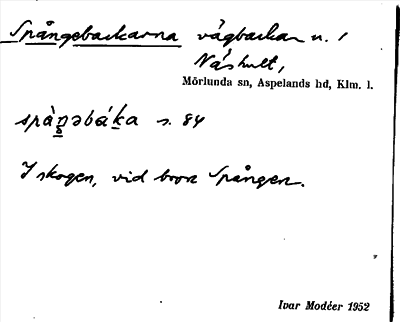 Spångebackarna vägbackar n. 1
Näshult,
Mörlunda sn, Aspelands hd, Klm. l.
spàŋ̱əbáḵa s. 84
I skogen, vid bron Spången.
Ivar Modéer 1952